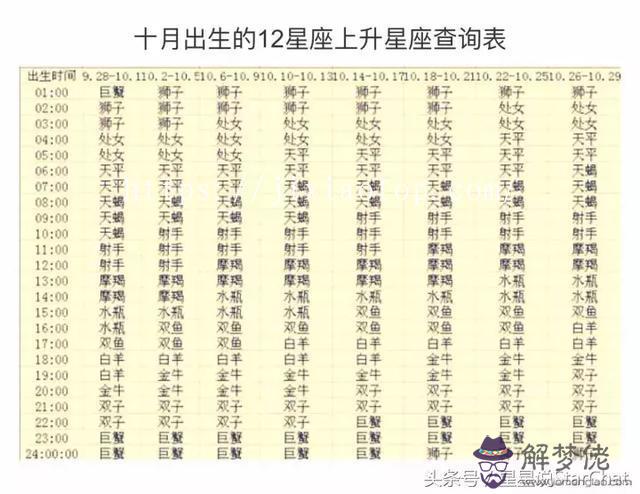 十月出生的12星座上升星座查询表
出生时间 9.28-10.1 10.2-10.5 10.6-10.9 10.10-10.13 10.14-10.17 10.18-10.21 10.22-10.25 10.26-10.29
01:00 巨蟹 狮子 狮子 狮子 狮子 狮子 狮子 狮子
02:00 狮子 狮子 狮子 狮子 狮子 狮子 处女 处女
03:00 狮子 狮子 处女 处女 处女 处女 处女 处女
04:00 处女 处女 处女 处女 处女 处女 天平 天平
05:00 处女 处女 处女 天平 天平 天平 天平 天平
06:00 天平 天平 天平 天平 天平 天平 天平 天蝎
07:00 天平 天平 天平 天蝎 天蝎 天蝎 天蝎 天蝎
08:00 天蝎 天蝎 天蝎 天蝎 天蝎 天蝎 天蝎 天蝎
09:00 天蝎 天蝎 天蝎 天蝎 射手 射手 射手 射手
10:00 天蝎 射手 射手 射手 射手 射手 射手 射手
11:00 射手 射手 射手 射手 射手 摩羯 摩羯 摩羯
12:00 射手 射手 摩羯 摩羯 摩羯 摩羯 摩羯 摩羯
13:00 摩羯 摩羯 摩羯 摩羯 摩羯 水瓶 水瓶 水瓶
14:00 摩羯 摩羯 水瓶 水瓶 水瓶 水瓶 水瓶 水瓶
15:00 水瓶 水瓶 水瓶 水瓶 双鱼 双鱼 双鱼 双鱼
16:00 水瓶 双鱼 双鱼 双鱼 双鱼 双鱼 双鱼 白羊
17:00 双鱼 双鱼 双鱼 白羊 白羊 白羊 白羊 白羊
18:00 白羊 白羊 白羊 白羊 白羊 金牛 金牛 金牛
19:00 白羊 金牛 金牛 金牛 金牛 金牛 金牛 双子
20:00 金牛 金牛 金牛 金牛 双子 双子 双子 双子
21:00 双子 双子 双子 双子 双子 双子 双子 双子
22:00 双子 双子 双子 双子 巨蟹 巨蟹 巨蟹 巨蟹
23:00 巨蟹 巨蟹 巨蟹 巨蟹 巨蟹 巨蟹 巨蟹 巨蟹
24:00:00 巨蟹 巨蟹 巨蟹 巨蟹 巨蟹 狮子
头条号 StarChat
解梦佬